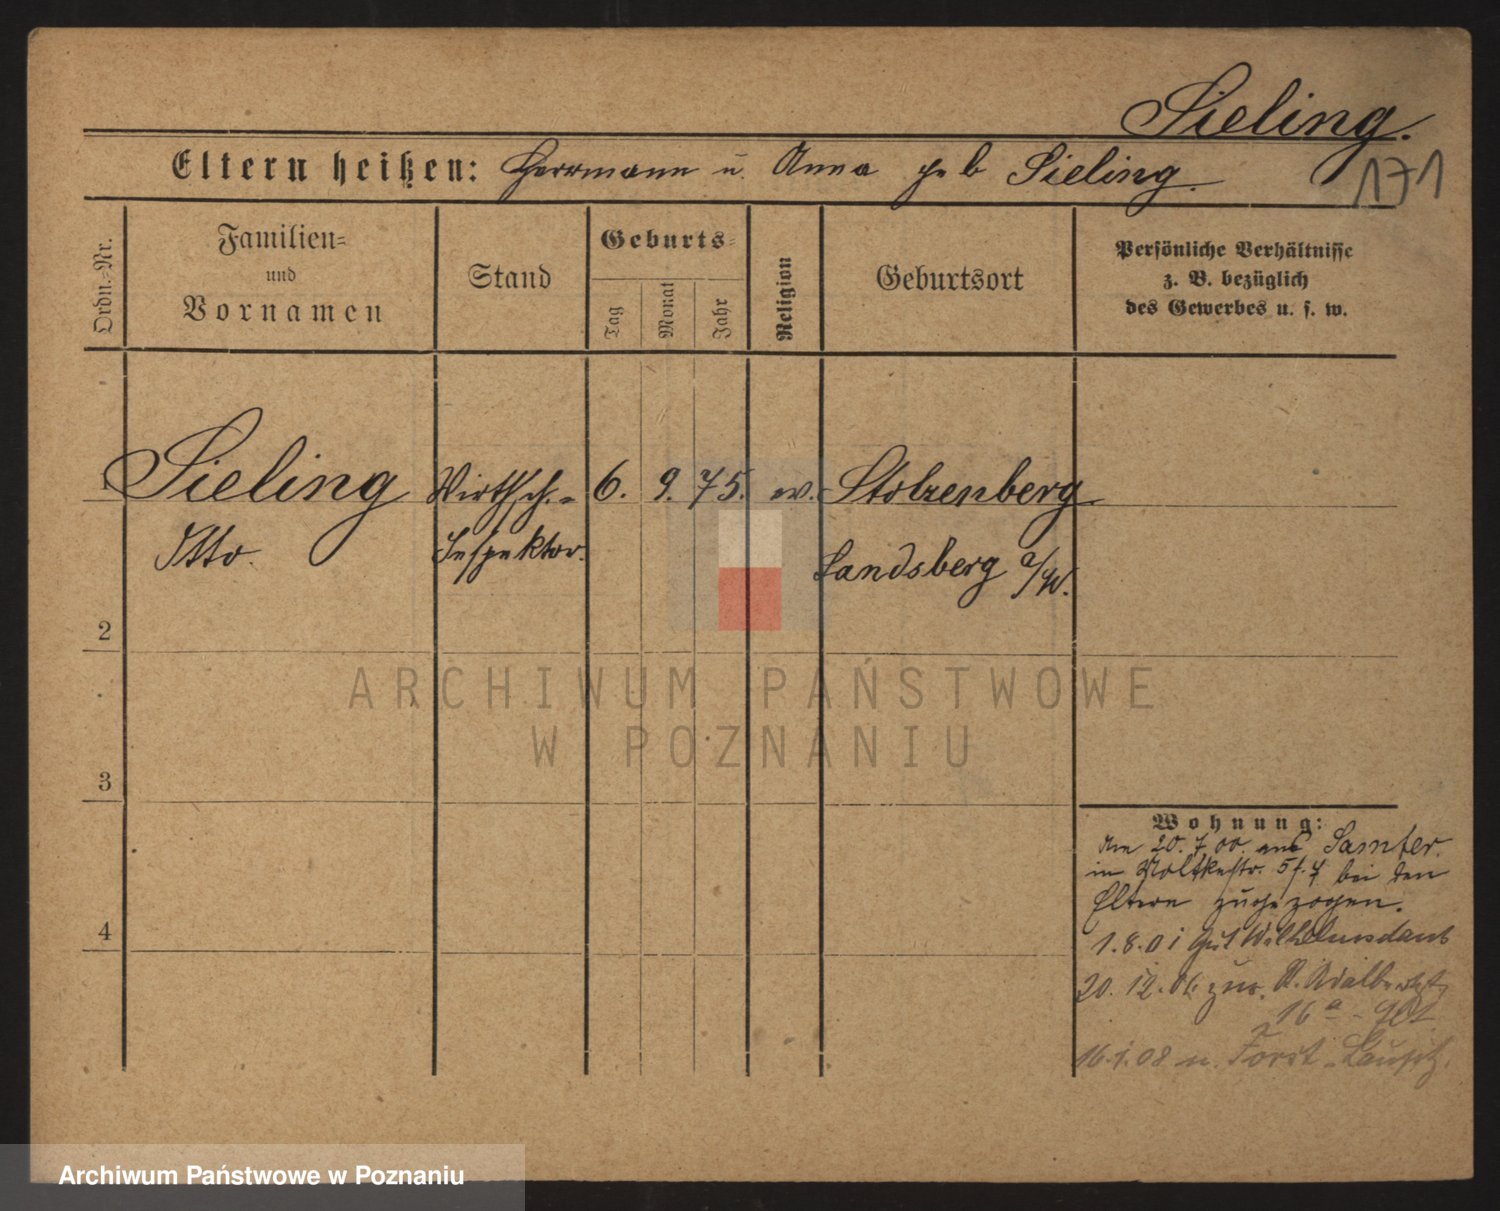 Sieling.
171
Eltern heißen: Herrmann u. Anna geb Sieling.
Ordn.-Nr.
Familien-
und
Vornamen
Stand
Geburts-
Tag
Monat
Jahr
Religion
Geburtsort
Persönliche Verhältnisse
z. B. bezüglich
des Gewerbes u. s. w.
1 Sieling Wirthsch.- 6. 9. 75. ev. Stolzenberg
Otto. Inspektor. Landsberg a/W.
2
3
4
Wohnung:
Am 20. 7. 00. aus Samter.
in Moltkestr. bei den
Eltern zugezogen.
1.8.01 Gut
20. 12. 06 zur.
16a
16.1.08 n. Forst-Lausitz.
ARCHIWUM PAŃSTWOWE
W POZNANIU
Archiwum Państwowe w Poznaniu